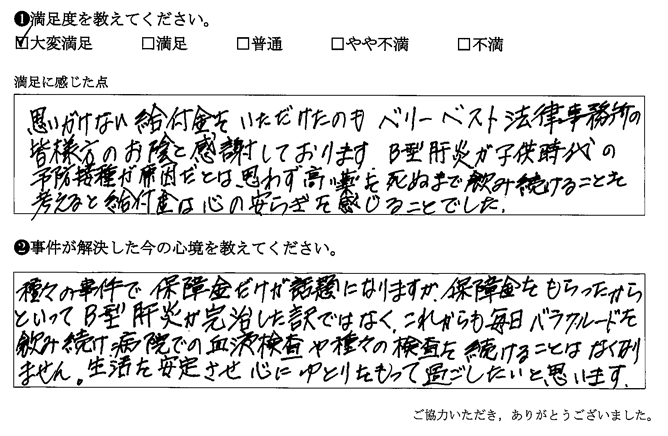 ❶満足度を教えてください。
☑大変満足 □満足 □普通 □やや不満 □不満
満足に感じた点
思いがけない給付金をいただけたのも ベリーベスト法律事務所の
皆様方のお陰と感謝しております B型肝炎が子供時代の
予防接種が原因だとは思わず高い薬を死ぬまで飲み続けることを
考えると給付金は心の安らぎを感じることでした。
❷事件が解決した今の心境を教えてください。
種々の事件で保障金だけが話題になりますが、保障金をもらったから
といってB型肝炎が完治した訳ではなく、これからも毎日バラクルードを
飲み続け病院での血液検査や種々の検査を続けることはなくなり
ません。生活を安定させ心にゆとりをもって過ごしたいと思います。
ご協力いただき，ありがとうございました。